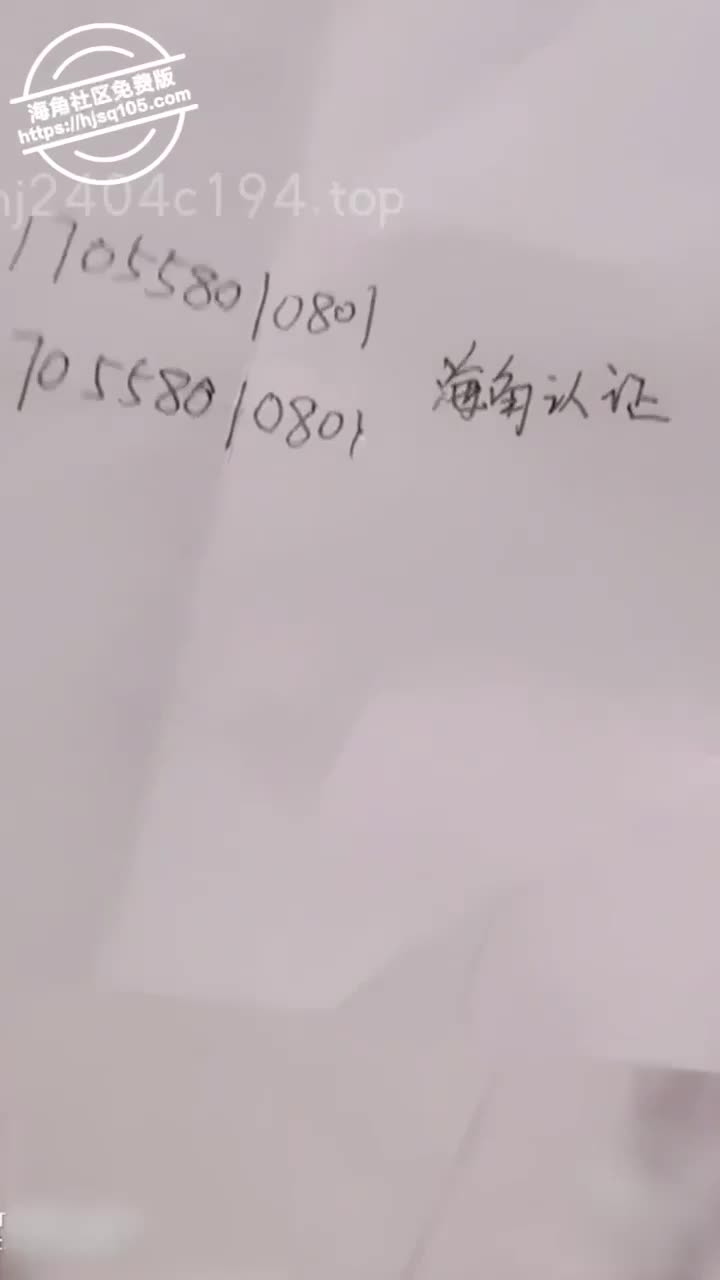 海角社区免费版
https://hjsq105.com
hj2404c194.top
170558010801
70558010801 海角认证